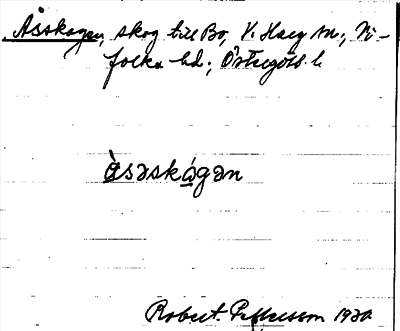 Åsskogen, skog till Bo, V. Harg sn; Vi-
folka hd; Östergötl. l.
àsəskågan
Robert Pettersson 1930